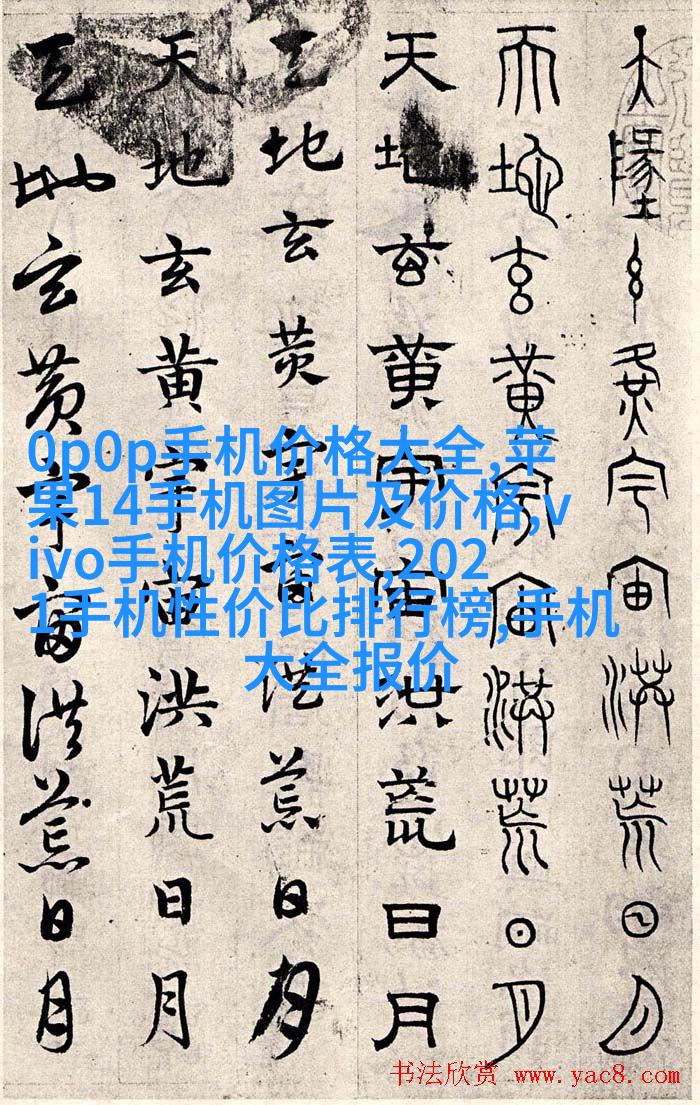 天墬玄黄宇宙洪荒日月
天地玄黄宇宙洪荒日月
天地玄黄宇宙洪荒日月
天地玄黄宇宙洪荒日月
天地玄黄宇宙洪荒日月
天地玄黄宇宙洪荒日月
0p0p手机价格大全,苹
果14手机图片及价格,v
ivo手机价格表,202
1手机性价比排行榜,手机
大全报价
书法欣赏 www.yac8.com